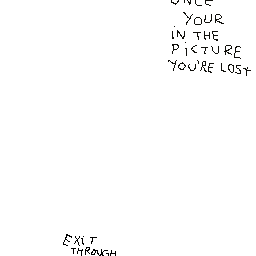 ONCE
YOUR
IN THE
PiCTURE
YOU'RE LOST
EXIT
THROUGH